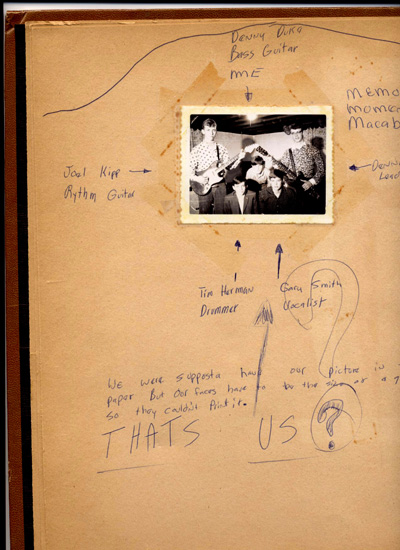 Denny
Bass Guitar
ME
Memo
Momen
Macab
Joel Kipp
Rythm Guitar
Lead
Tim Herman
Drummer
Gary Smith
Vocalist
We were supposta have our picture in
paper But our faces have to be the size of a
so they couldn't Print it.
THATS US ?